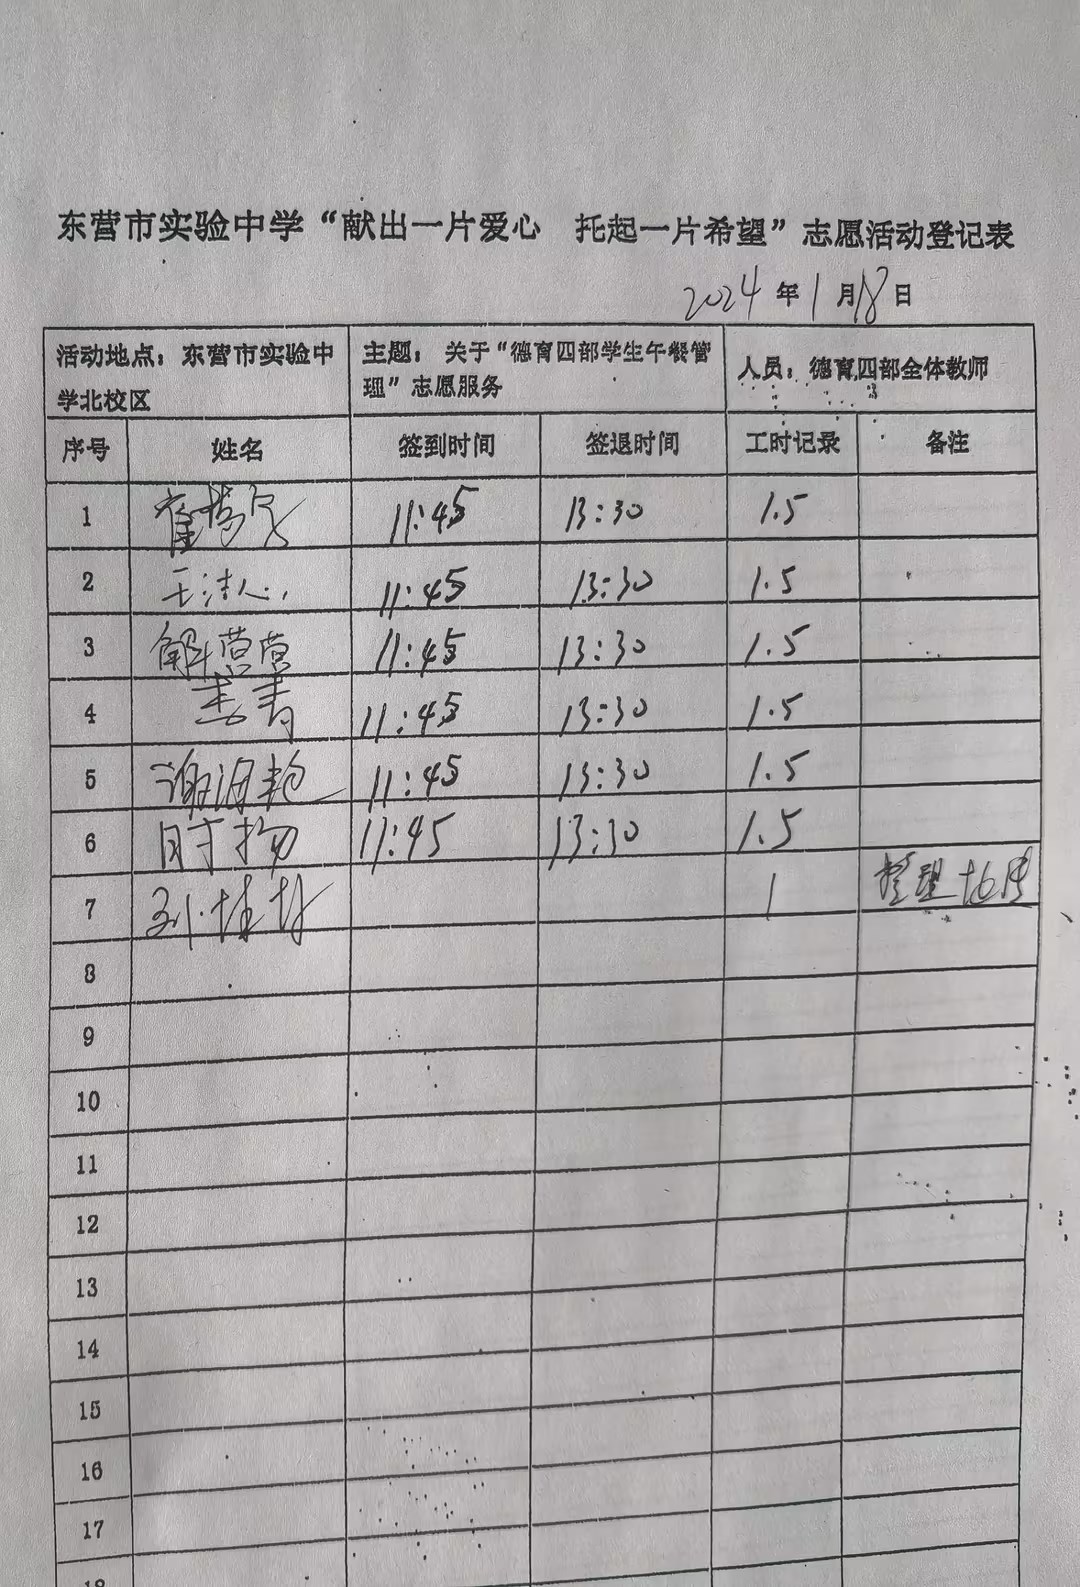 东营市实验中学“献出一片爱心 托起一片希望”志愿活动登记表
2024年1月18日
活动地点：东营市实验中
学北校区
主题：关于“德育四部学生午餐管
理”志愿服务
人员：德育四部全体教师
序号 姓名 签到时间 签退时间 工时记录 备注
1 11:45 13:30 1.5
2 11:45 13:30 1.5
3 解营营 11:45 13:30 1.5
4 11:45 13:30 1.5
5 11:45 13:30 1.5
6 时扬 11:45 13:30 1.5
7 1 整理
8
9
10
11
12
13
14
15
16
17
18